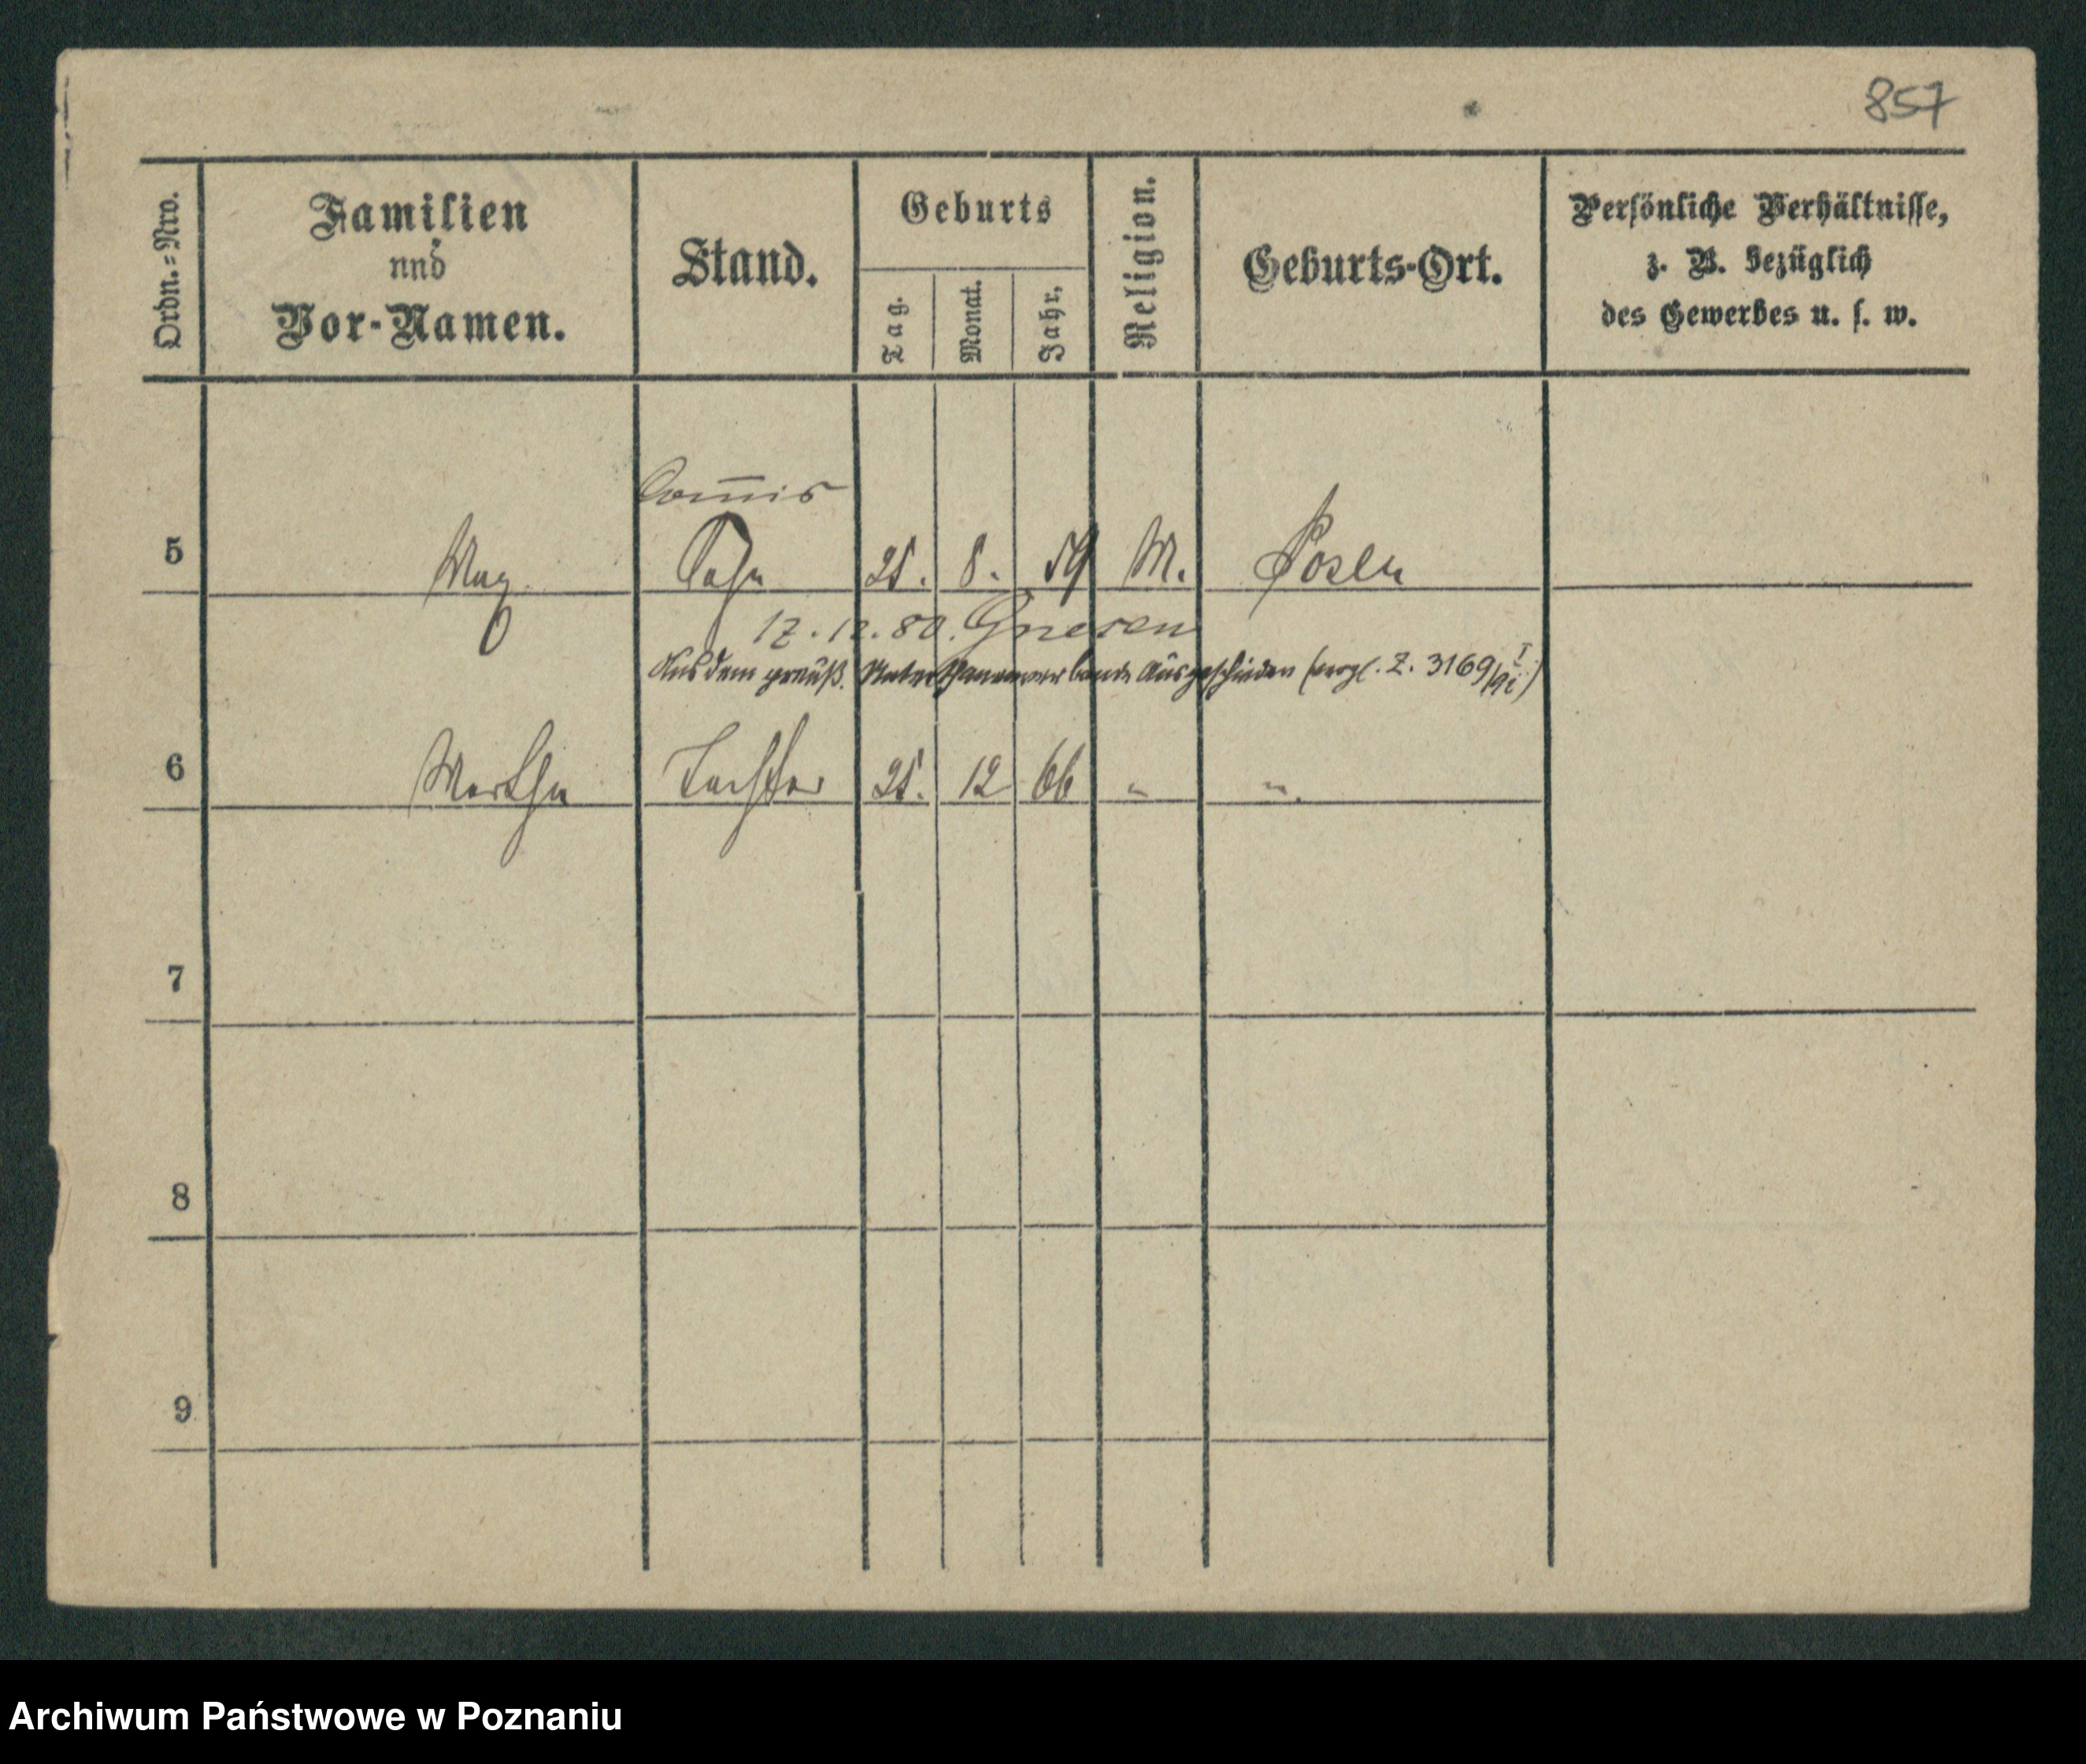 857
Ordn.=Nro.
Familien
und
Vor-Namen.
Stand.
Geburts
Tag.
Monat.
Jahr.
Religion.
Geburts-Ort.
Persönliche Verhältnisse,
z. B. bezüglich
des Gewerbes u. s. w.
Com̅is
5 Max Sohn 21. 8. 59 M. Posen
17.12.80. Gnesen
Aus dem preuß. Unterthanenverbande ausgeschieden (vergl. Z. 3169
6 Martha Tochter 21. 12 66 " ".
7
8
9
Archiwum Państwowe w Poznaniu